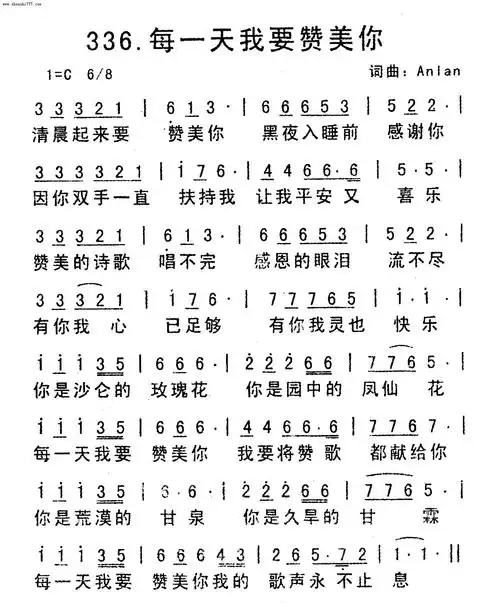 336.每一天我要赞美你
1=C 6/8 词曲：Anlan
3 3 3 2 1 | 6 1 3 · | 6 6 6 5 3 | 5 2 2 · |
清晨起来要 赞美你 黑夜入睡前 感谢你
3 3 3 3 2 1 | 1 7 6 · | 4 4 6 6 · 6 | 5 · 5 · |
因你双手一直 扶持我 让我平安又 喜乐
3 3 3 2 1 | 6 1 3 · | 6 6 6 5 3 | 5 2 2 · |
赞美的诗歌 唱不完 感恩的眼泪 流不尽
3 3 3 2 1 | 1 7 6 · | 7 7 7 6 5 | 1 · 1 · |
有你我 心 已足够 有你我灵也 快乐
1 1 1 3 5 | 6 6 6 · | 2 2 2 6 6 | 7 7 6 5 · |
你是沙仑的 玫瑰花 你是园中的 凤仙 花
1 1 1 3 5 | 6 6 6 · | 4 4 6 6 · 6 | 7 7 6 7 · |
每一天我要 赞美你 我要将赞歌 都献给你
1 1 1 3 5 | 6 · 6 · | 2 2 2 6 6 | 7 7 6 5 · |
你是荒漠的 甘泉 你是久旱的 甘 霖
1 1 1 3 5 | 6 6 6 4 3 | 2 6 5 · 7 2 | 1 · 1 · ||
每一天我要 赞美你我的 歌声永 不止 息